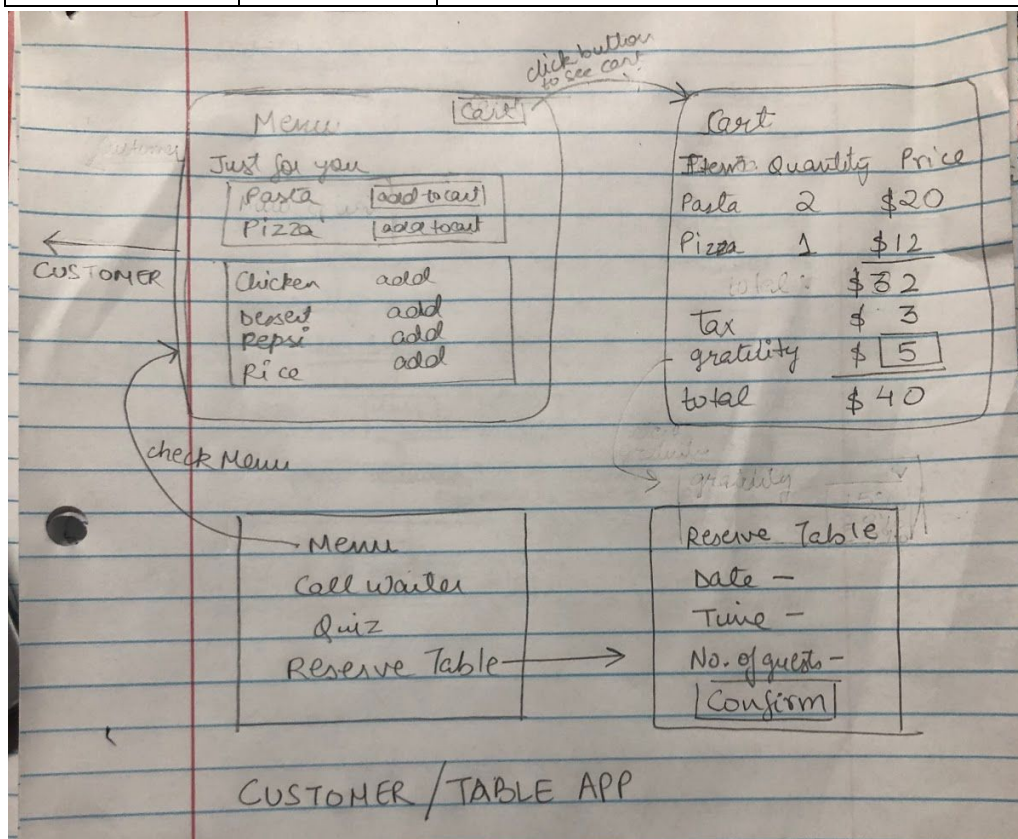 click button
to see cart
Menu
Cart
Just for you
Pasta add to cart
Pizza add to cart
Chicken add
Dessert add
Pepsi add
Rice add
CUSTOMER
Cart
Items Quantity Price
Pasta 2 $20
Pizza 1 $12
total: $32
Tax $ 3
gratility $ 5
total $40
check Menu
gratility
Menu
Call Waiter
Quiz
Reserve Table
Reserve Table
Date -
Time -
No. of guests -
Confirm
CUSTOMER / TABLE APP